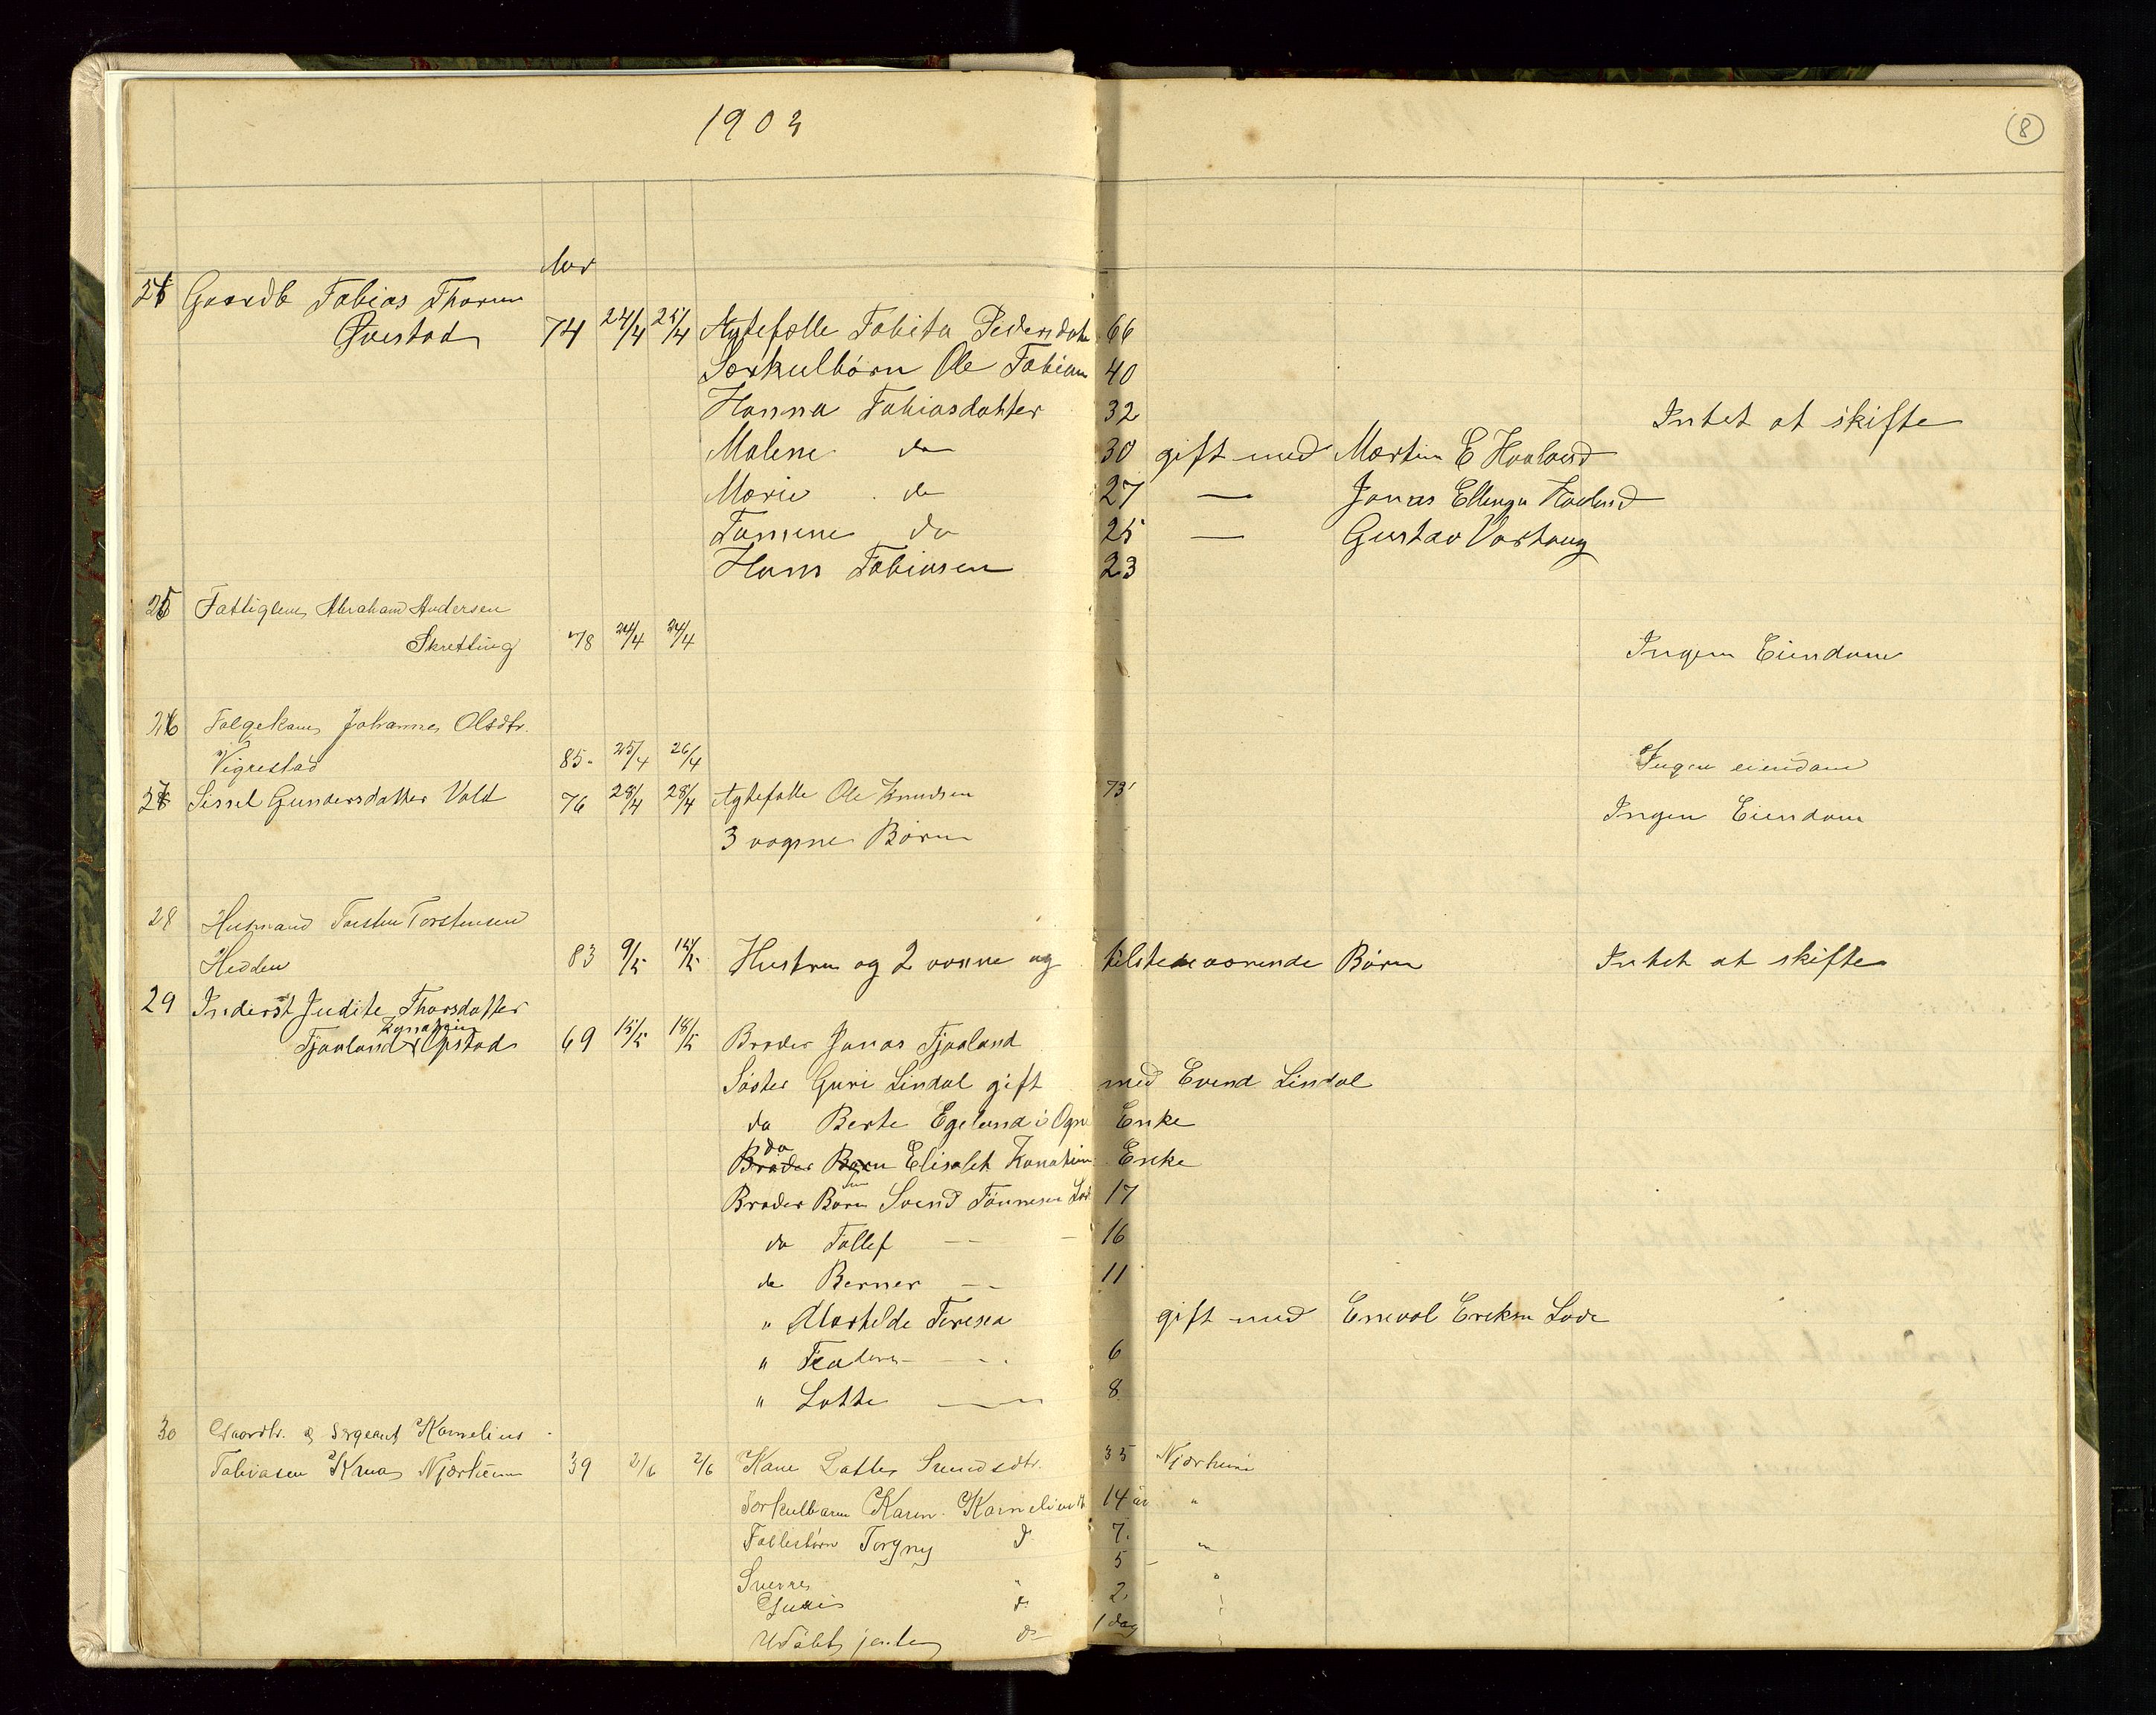 1903
8
Aar
Gaardb Tobias Thorsen
Qvestad 74 24/4 25/4 Ægtefælle Tobita Pedersdatr 66
Særkulbørn Ole Tobiasen 40
Hanna Tobiasdatter 32 Intet at skifte
Malene do 30 gift med Martin E Haaland
Marie do 27 — Jonas Ellingsen Haaland
Tomine do 25 — Gustav Varhaug
Hans Tobiasen 23
25 Fattiglem Abraham Andersen
Skretting 78 24/4 24/4 Ingen Eiendom
26 Folgekone Johanne Olsdtr.
Vigrestad 85 25/4 26/4 Ingen eiendom
27 Sissel Gundersdatter Vold 76 28/4 28/4 Ægtefælle Ole Knudsen 73
3 vogsne Børn Ingen Eiendom
28 Husmand Torsten Torstensen
Hedden 83 9/5 14/5 Hustru og 2 voxne og tilstedeværende Børn Intet at skifte
29 Inderst Judite Thorsdatter
Tjaaland Opstad 69 15/5 18/5 Broder Jonas Tjaaland
Søster Guri Lindal gift med Evend Lindal
do Berte Egeland i Ogne Enke
do
Broder Børn Elisabet Kanaheim Enke
Broder Børn Svend Tønnesen 17
do Tollef — — 16
do Berner — — 11
" Mathilde Teresea gift med Enevol Eriksen Lode
" Teodora — . . 6
" Lotte — — 8
30 Gaardbr. & Sergeant Kornelius
Tobiasen Krua Njærheim 39 2/6 2/6 Kone Lotte Svendsdtr. 35 Njærheim
Særkulbarn Karen Korneliusdt 14 år "
Fællesbørn Torgny d 7. "
Sverre " 5 — "
Guri d. 2.
Udøbt jente do 1 dag